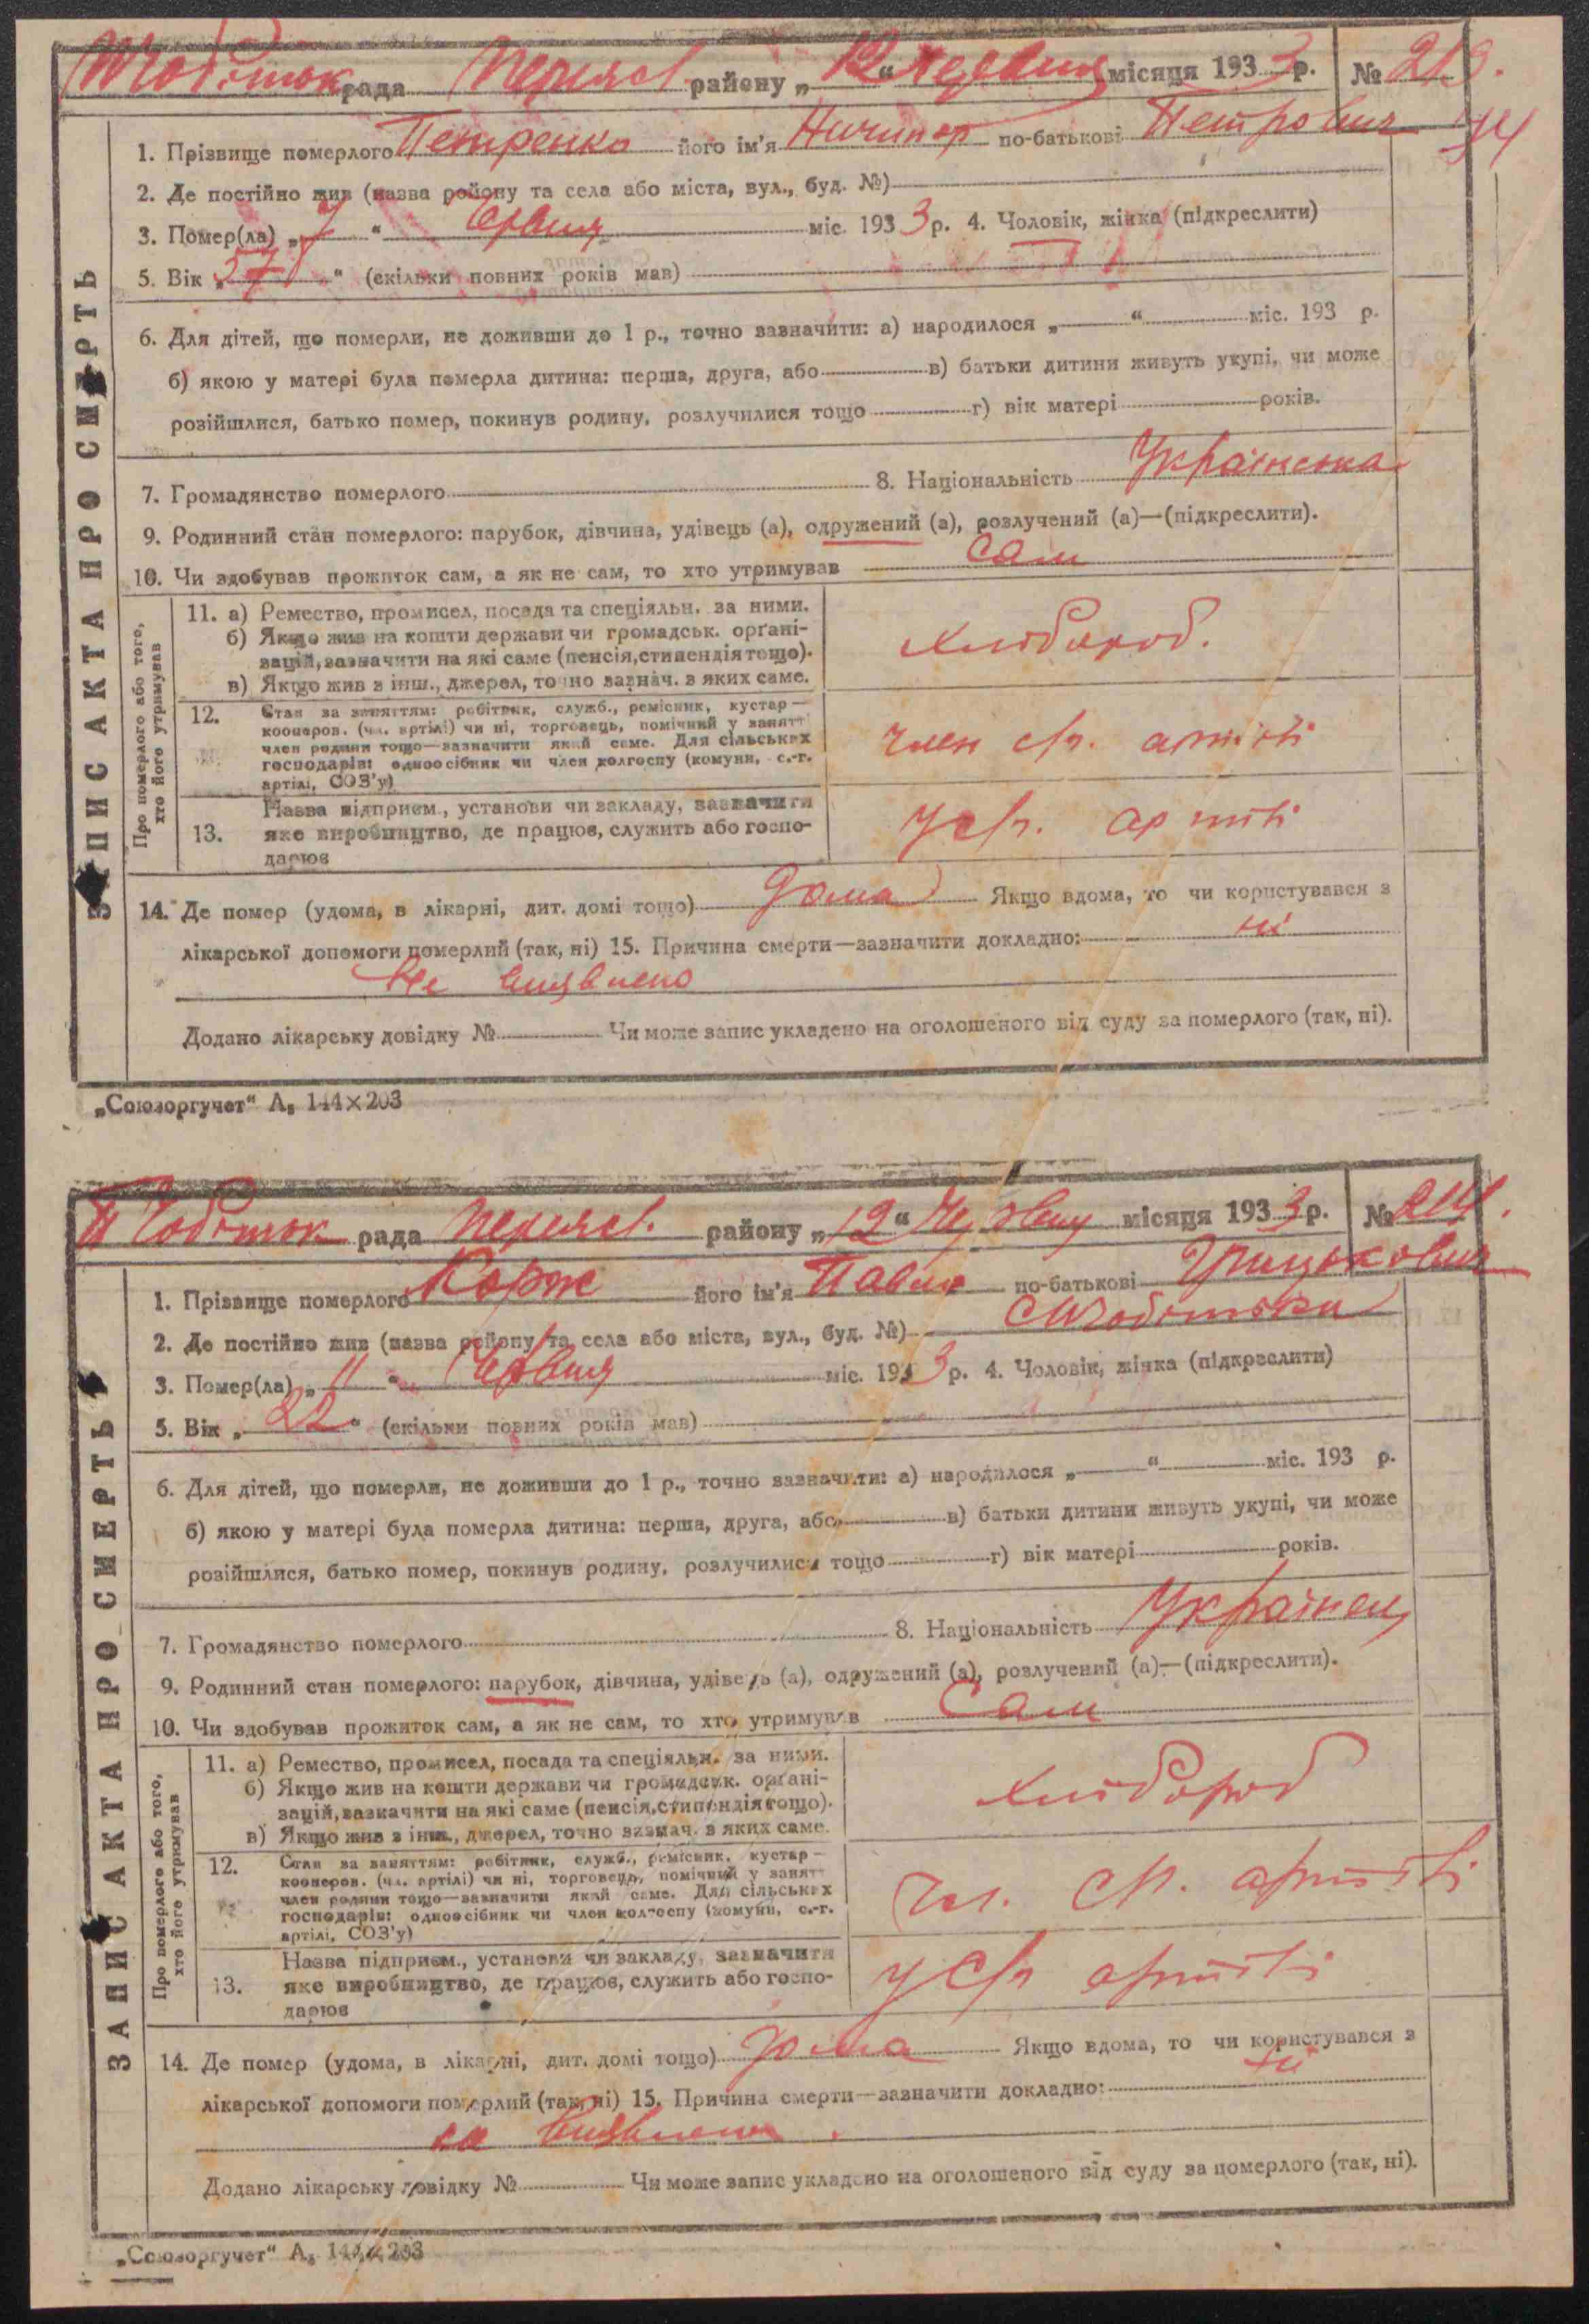 рада Переясл. району „12“ Червня місяця 1933 р. № 213.
94
1. Прізвище померлого Петренко його ім'я Ничипор по-батькові Петрович
2. Де постійно жив (назва району та села або міста, вул., буд. №)
3. Помер(ла) „7“ Червня міс. 1933 р. 4. Чоловік, жінка (підкреслити)
5. Вік „57“ (скільки повних років мав)
6. Для дітей, що померли, не доживши до 1 р., точно зазначити: а) народилося „ “ міс. 193 р.
б) якою у матері була померла дитина: перша, друга, або в) батьки дитини живуть укупі, чи може
розійшлися, батько помер, покинув родину, розлучилися тощо г) вік матері років.
7. Громадянство померлого 8. Національність Українська
9. Родинний стан померлого: парубок, дівчина, удівець (а), одружений (а), розлучений (а)—(підкреслити).
10. Чи здобував прожиток сам, а як не сам, то хто утримував Сам
ЗАПИС АКТА ПРО СМЕРТЬ
Про померлого або того,
хто його утримував
11. а) Ремество, промисел, посада та спеціяльн. за ними.
б) Якщо жив на кошти держави чи громадськ. органі-
зацій, зазначити на які саме (пенсія, стипендія тощо).
в) Якщо жив з інш., джерел, точно зазнач. з яких саме.
хлібороб.
12. Стан за заняттям: робітник, служб., ремісник, кустар—
кооперов. (чл. артілі) чи ні, торговець, помічний у занятт
член родини тощо—зазначити який саме. Для сільських
господарів: одноосібник чи член колгоспу (комуни, с.-г.
артілі, СОЗ'у)
член с/г. артілі
13. Назва підприєм., установи чи закладу, зазначити
яке виробництво, де працює, служить або госпо-
дарює
у с/г. артілі
14. Де помер (удома, в лікарні, дит. домі тощо) Дома Якщо вдома, то чи користувався з
лікарської допомоги померлий (так, ні) 15. Причина смерти—зазначити докладно: ні
Не виявлено
Додано лікарську довідку № Чи може запис укладено на оголошеного від суду за померлого (так, ні).
„Союзоргучет“ А₅ 144×203
рада Переясл. району „12“ Червня місяця 1933 р. № 214.
1. Прізвище померлого Корж його ім'я Павло по-батькові Грицькович
2. Де постійно жив (назва району та села або міста, вул., буд. №)
3. Помер(ла) „11“ Червня міс. 1933 р. 4. Чоловік, жінка (підкреслити)
5. Вік „22“ (скільки повних років мав)
6. Для дітей, що померли, не доживши до 1 р., точно зазначити: а) народилося „ “ міс. 193 р.
б) якою у матері була померла дитина: перша, друга, або в) батьки дитини живуть укупі, чи може
розійшлися, батько помер, покинув родину, розлучилися тощо г) вік матері років.
7. Громадянство померлого 8. Національність Українец
9. Родинний стан померлого: парубок, дівчина, удівець (а), одружений (а), розлучений (а)—(підкреслити).
10. Чи здобував прожиток сам, а як не сам, то хто утримував Сам
ЗАПИС АКТА ПРО СМЕРТЬ
Про померлого або того,
хто його утримував
11. а) Ремество, промисел, посада та спеціяльн. за ними.
б) Якщо жив на кошти держави чи громадськ. органі-
зацій, зазначити на які саме (пенсія, стипендія тощо).
в) Якщо жив з інш., джерел, точно зазнач. з яких саме.
хлібороб
12. Стан за заняттям: робітник, служб., ремісник, кустар—
кооперов. (чл. артілі) чи ні, торговець, помічний у занятт
член родини тощо—зазначити який саме. Для сільських
господарів: одноосібник чи член колгоспу (комуни, с.-г.
артілі, СОЗ'у)
чл. с/г. артілі
13. Назва підприєм., установи чи закладу, зазначити
яке виробництво, де працює, служить або госпо-
дарює
у с/г артілі
14. Де помер (удома, в лікарні, дит. домі тощо) Дома Якщо вдома, то чи користувався з
лікарської допомоги померлий (так, ні) 15. Причина смерти—зазначити докладно: ні
не виявлено.
Додано лікарську довідку № Чи може запис укладено на оголошеного від суду за померлого (так, ні).
„Союзоргучет“ А₅ 144×203